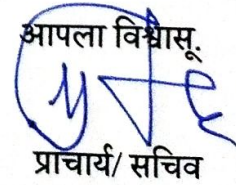 आपला विश्वासू.
प्राचार्य/ सचिव